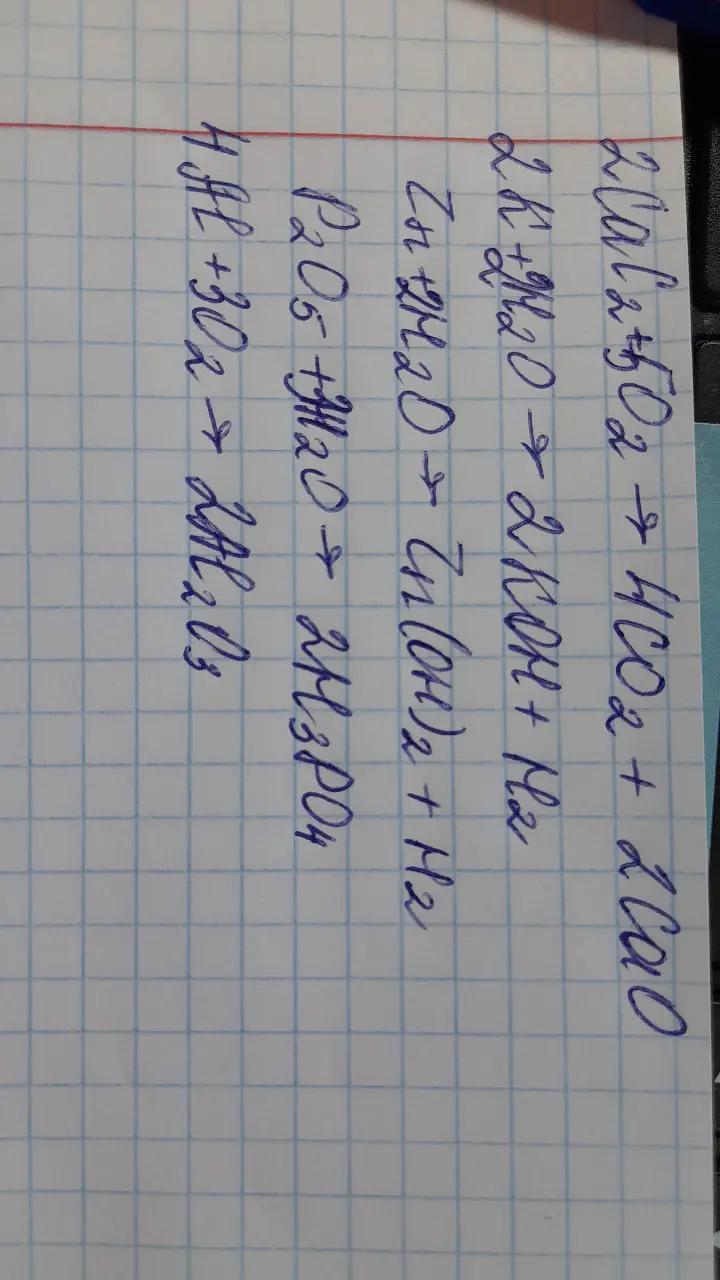 2CaC2+5O2 → 4CO2 + 2CaO
2K+2H2O → 2KOH + H2
Zn+2H2O → Zn(OH)2 + H2
P2O5 +3H2O → 2H3PO4
4Al +3O2 → 2Al2O3